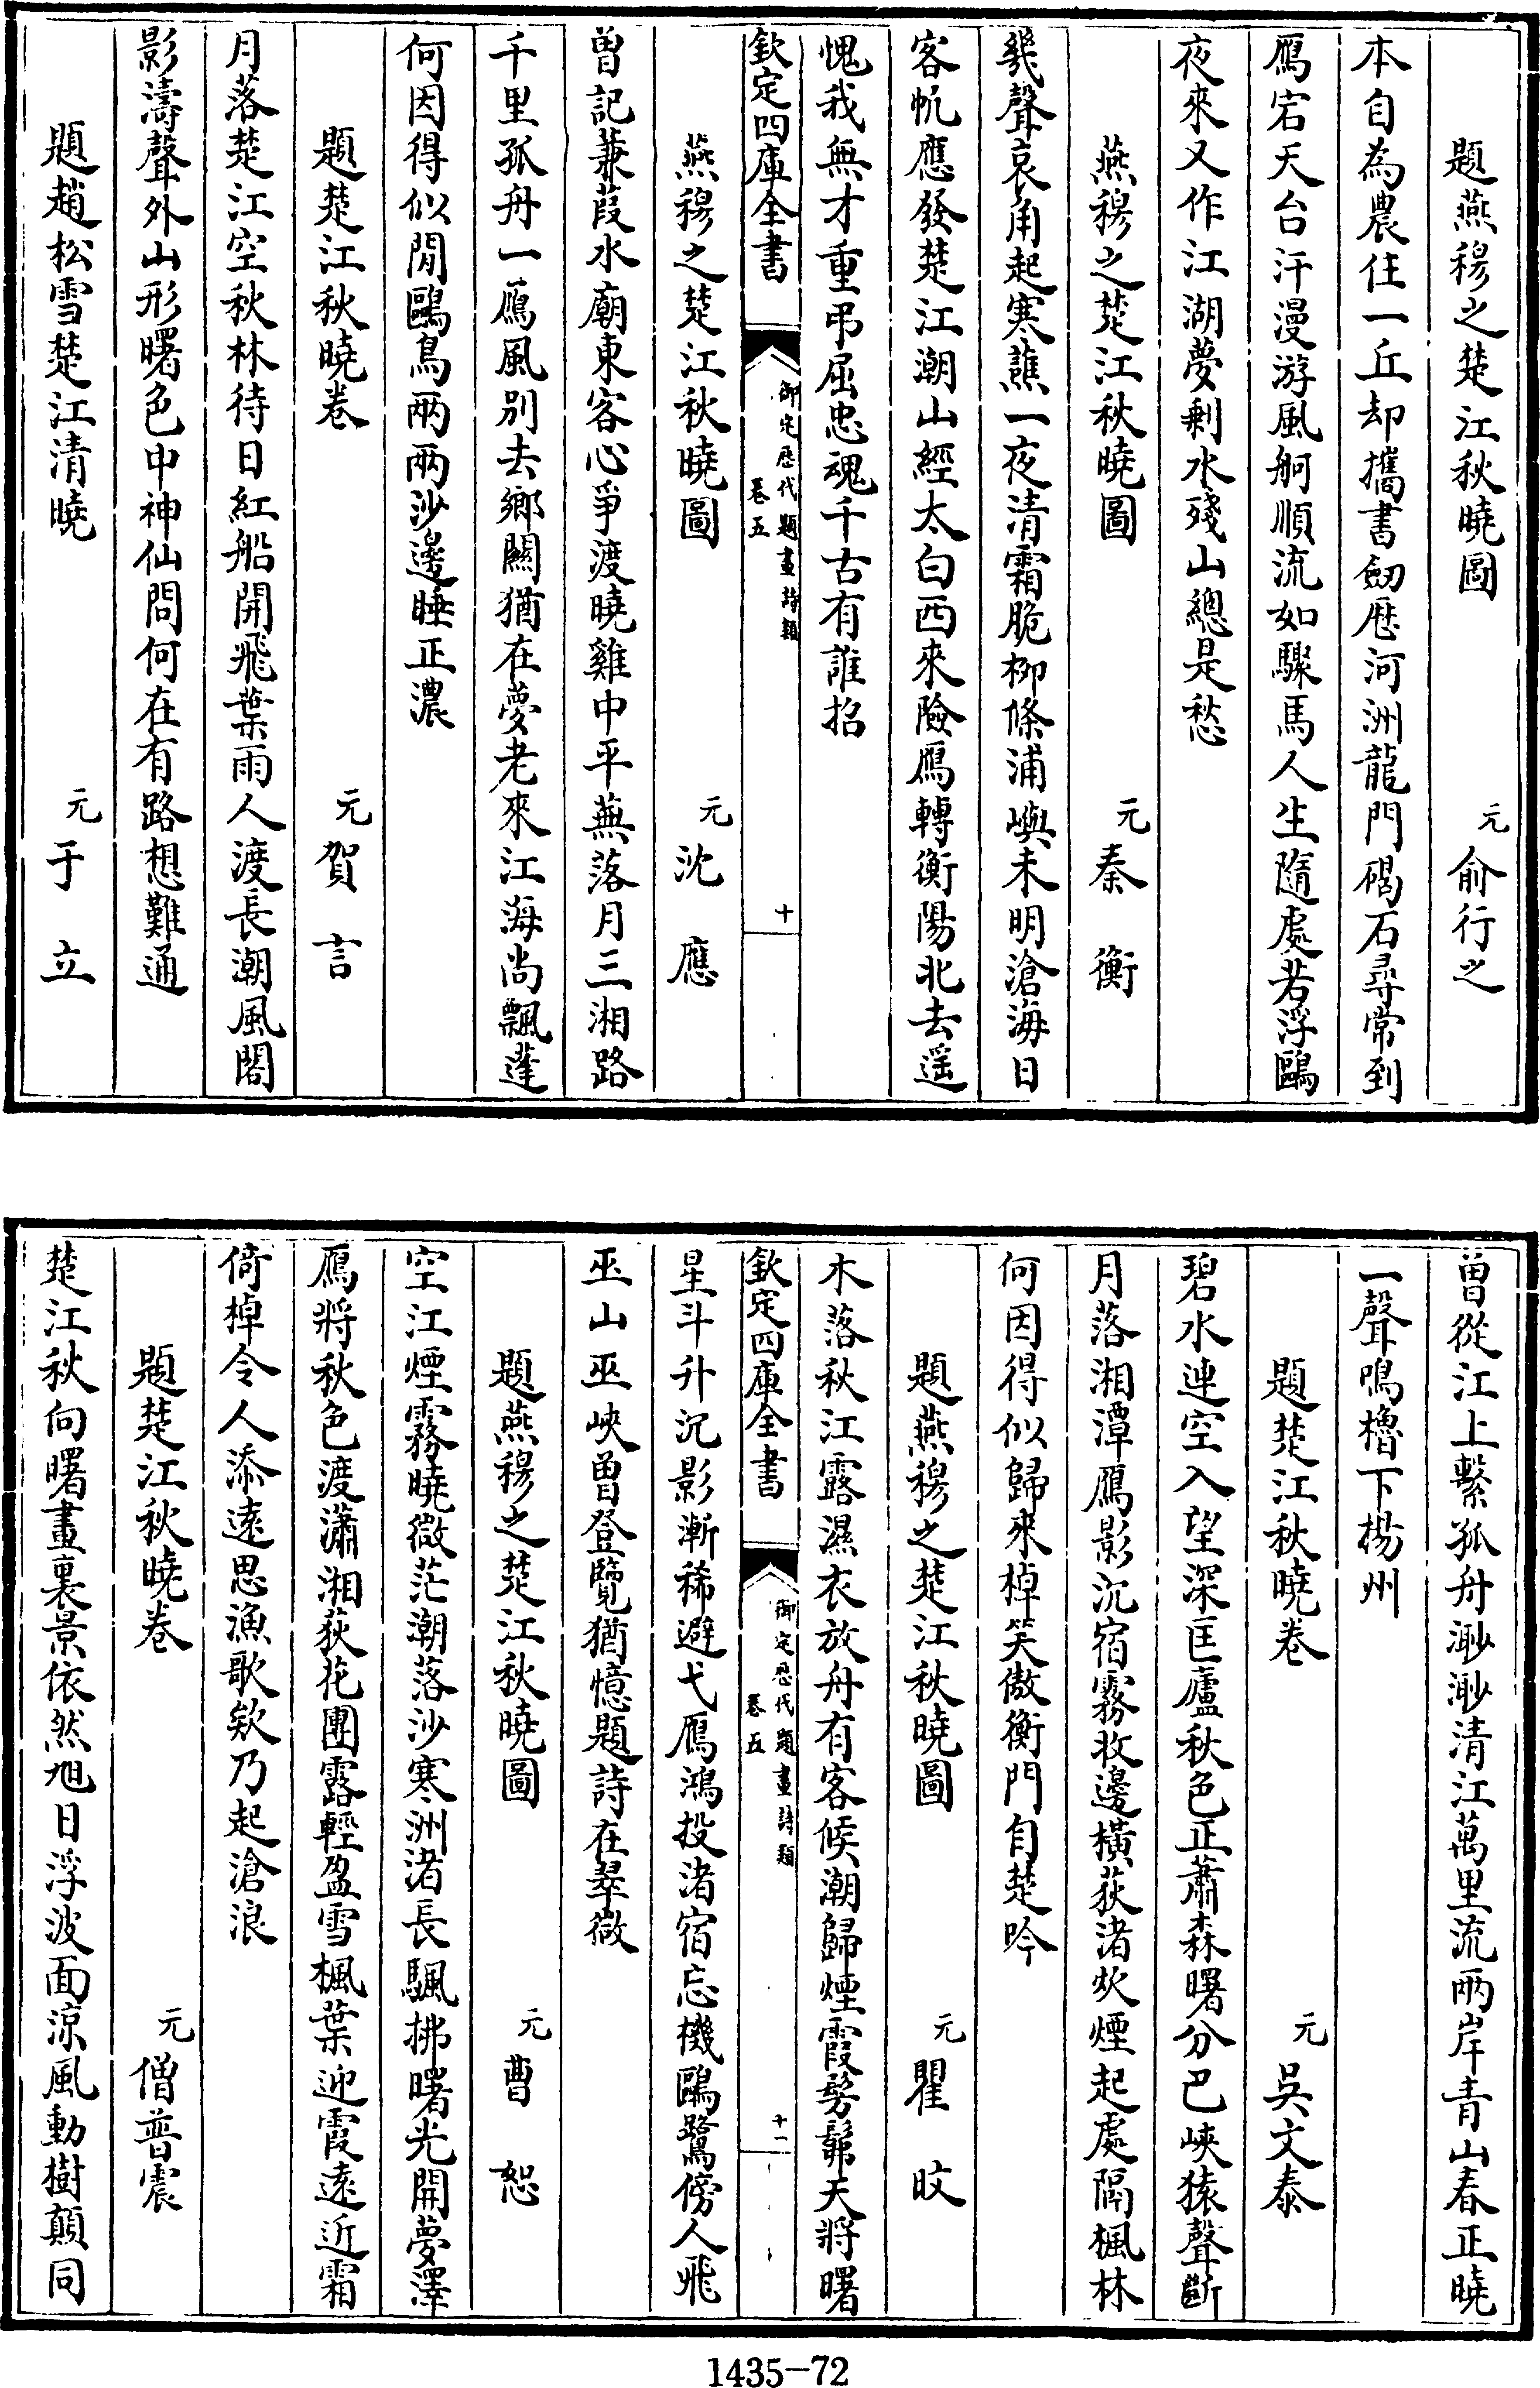 題燕穆之楚江秋曉圖　元 俞行之
本自為農住一丘却攜書劒歷河洲龍門碣石尋常到
鴈宕天台汗漫游風舸順流如驟馬人生隨處若浮鷗
夜來又作江湖夢剩水殘山總是愁
燕穆之楚江秋曉圖　元 秦衡
幾聲哀角起寒譙一夜清霜脆柳條浦嶼未明滄海日
客帆應發楚江潮山經太白西來險鴈轉衡陽北去遥
愧我無才重弔屈忠魂千古有誰招
欽定四庫全書　御定歷代題畫詩類　卷五　十
燕穆之楚江秋曉圖　元 沈應
曽記蒹葭水廟東客心爭渡曉雞中平蕪落月三湘路
千里孤舟一鴈風别去鄉關猶在夢老來江海尚飄蓬
何因得似閒鷗鳥兩兩沙邊睡正濃
題楚江秋曉卷　元 賀言
月落楚江空秋林待日紅船開飛葉雨人渡長潮風閣
影濤聲外山形曙色中神仙問何在有路想難通
題趙松雪楚江清曉　元 于立
曽從江上繫孤舟渺渺清江萬里流兩岸青山春正曉
一聲鳴櫓下楊州
題楚江秋曉卷　元 吳文泰
碧水連空入望深匡廬秋色正蕭森曙分巴峽猿聲斷
月落湘潭鴈影沉宿霧收邊橫荻渚炊煙起處隔楓林
何因得似歸來棹笑傲衡門自楚吟
題燕穆之楚江秋曉圖　元 瞿旼
木落秋江露濕衣放舟有客候潮歸煙霞髣髴天將曙
欽定四庫全書　御定歷代題畫詩類　卷五　十一
星斗升沉影漸稀避弋鴈鴻投渚宿忘機鷗鷺傍人飛
巫山巫峽曽登覽猶憶題詩在翠微
題燕穆之楚江秋曉圖　元 曹恕
空江煙霧曉微茫潮落沙寒洲渚長颿拂曙光開夢澤
鴈將秋色渡瀟湘荻花團露輕盈雪楓葉迎霞遠近霜
倚棹令人添遠思漁歌欸乃起滄浪
題楚江秋曉卷　元 僧普震
楚江秋向曙畫裏景依然旭日浮波面涼風動樹顛同
1435-72